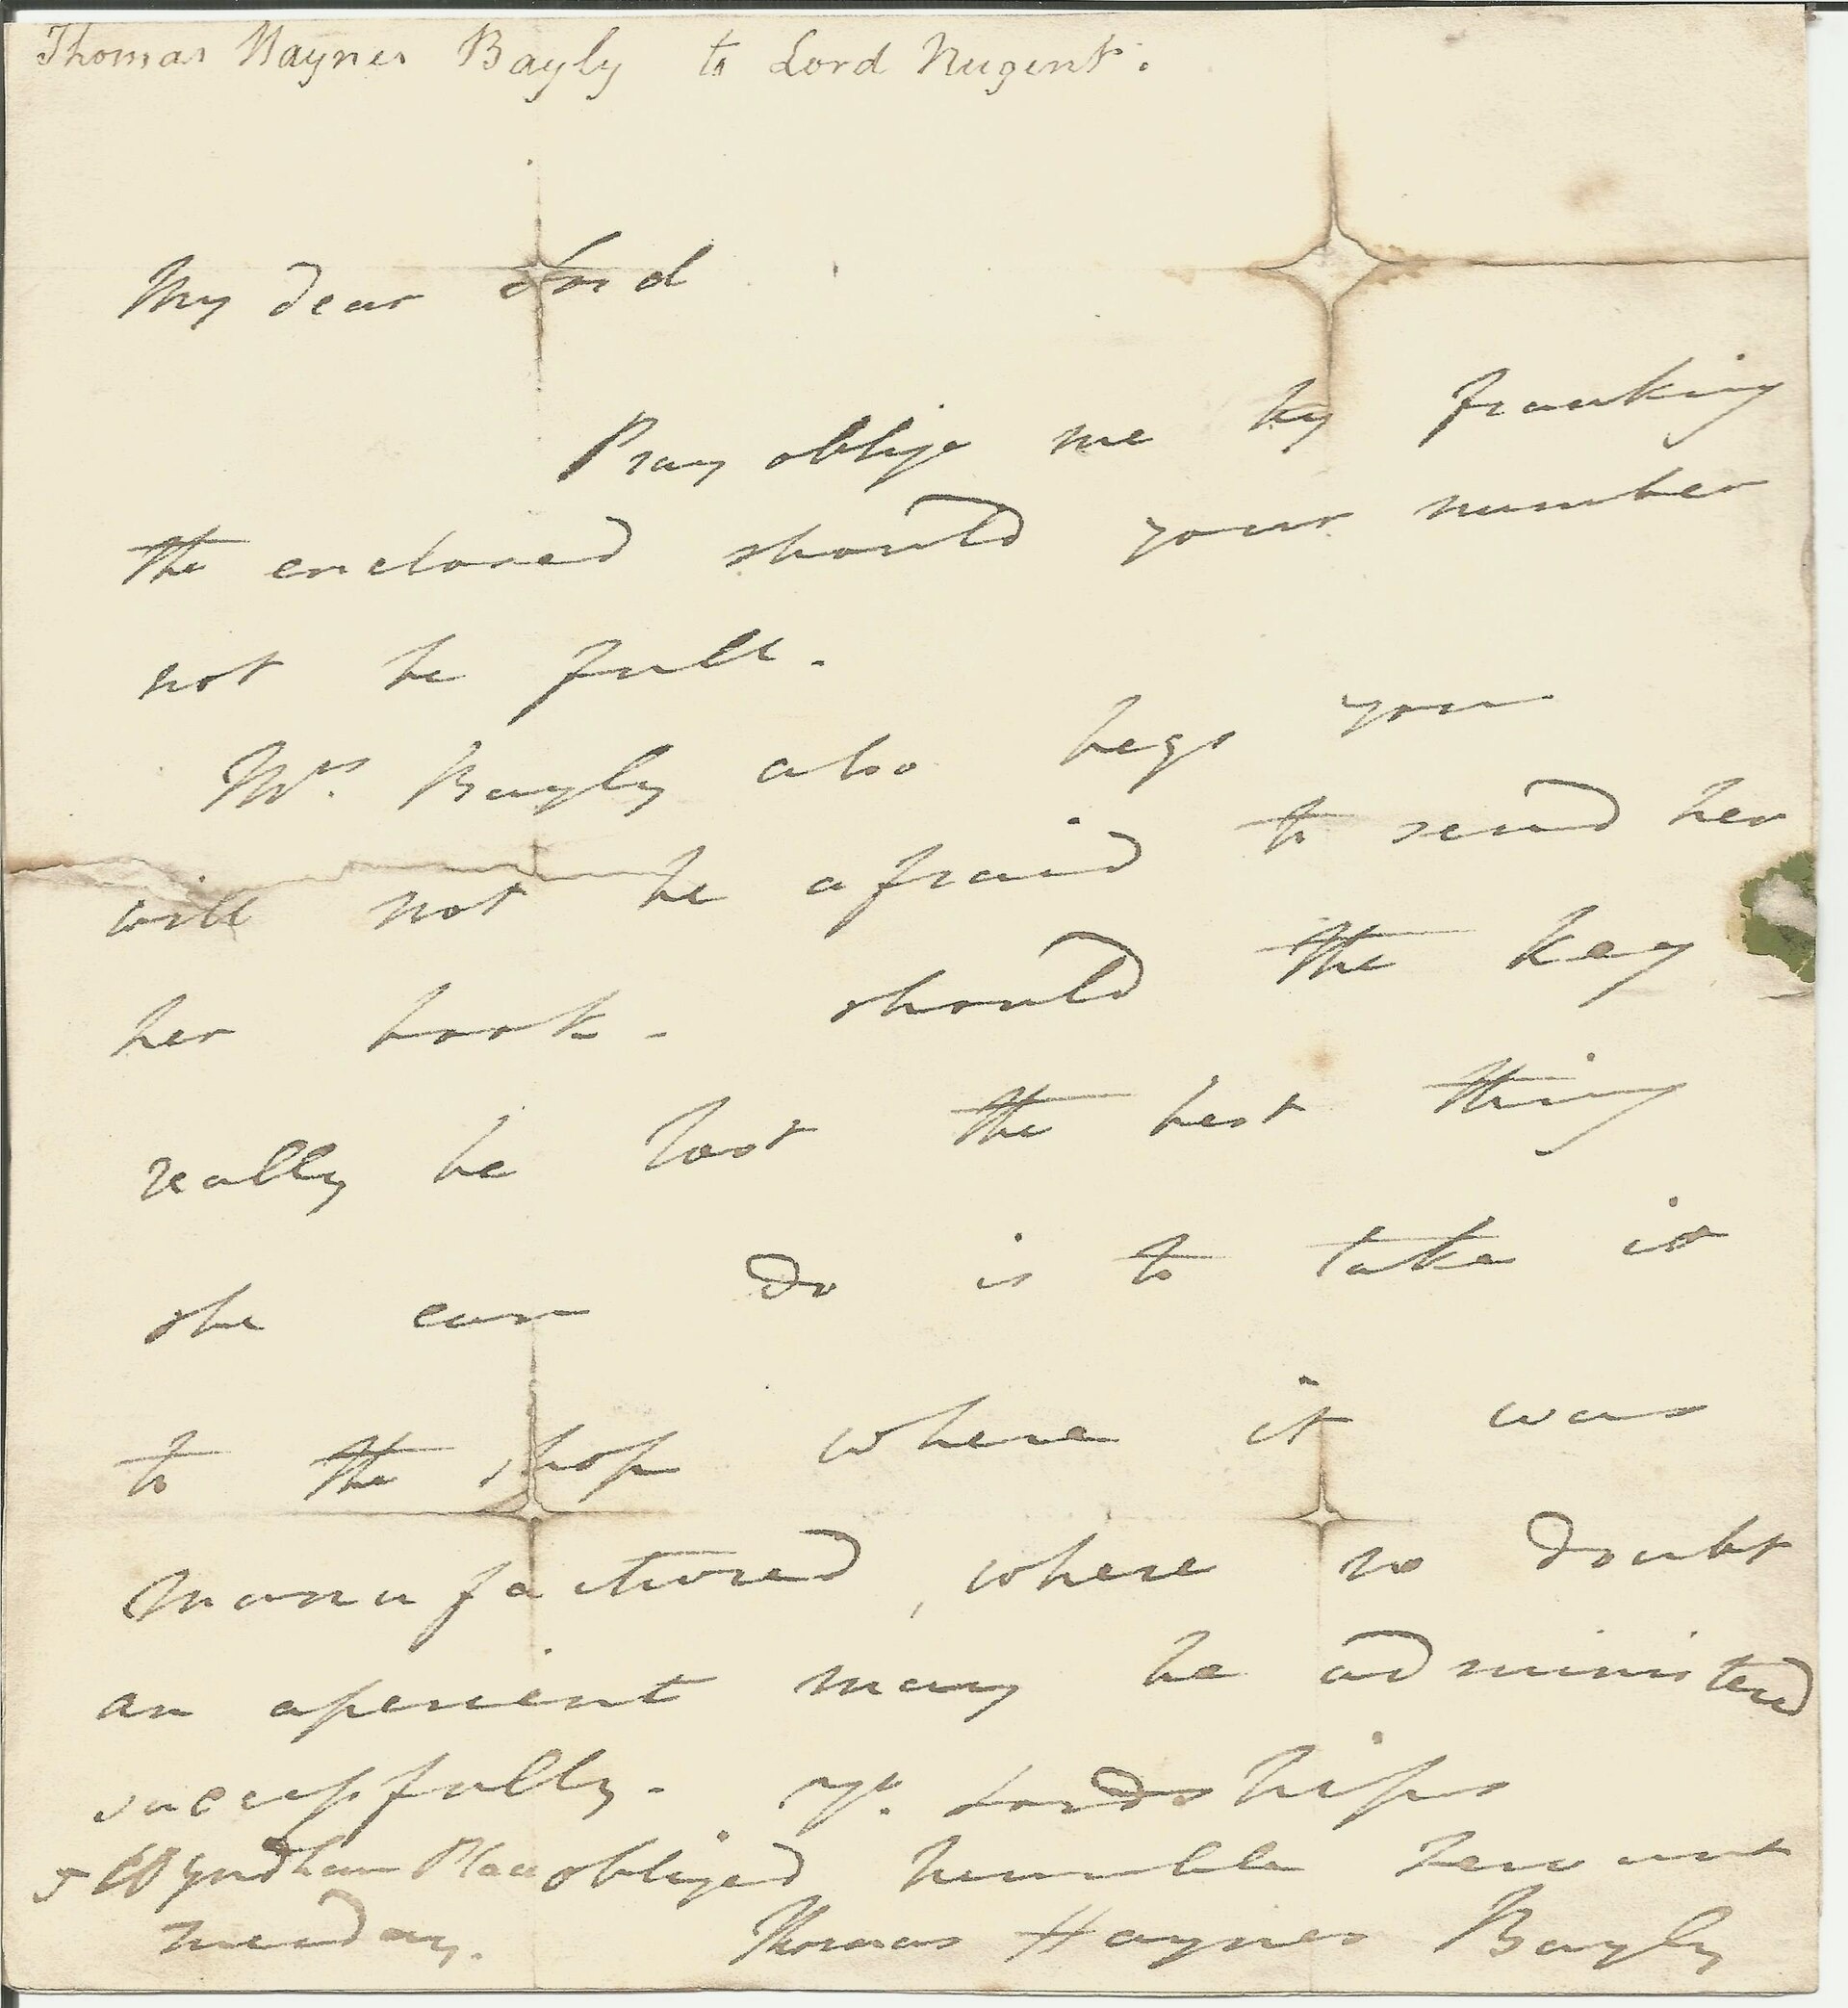 Thomas Haynes Bayly to Lord Nugent.
My dear Lord
Pray oblige me by franking
the enclosed should your number
not be full.
Mrs. Bayly also begs you
will not be afraid to send her
her book - should the key
really be lost the best thing
she can do is to take it
to the shop where it was
manufactured, where no doubt
an aperient may be administered
successfully. Yr. Lordships
5 Wyndham Place obliged humble servant
Tuesday. Thomas Haynes Bayly